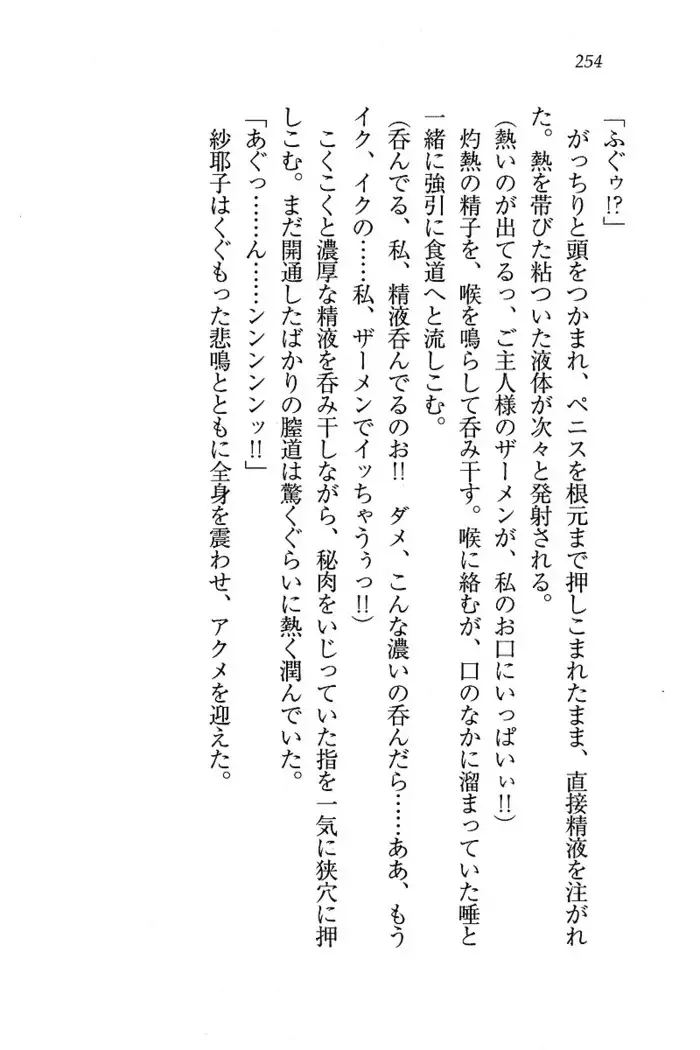 254
「ふぐゥ!?」
　がっちりと頭をつかまれ、ペニスを根元まで押しこまれたまま、直接精液を注がれ
た。熱を帯びた粘ついた液体が次々と発射される。
(熱いのが出てるっ、ご主人様のザーメンが、私のお口にいっぱいぃ!!)
　灼熱の精子を、喉を鳴らして呑み干す。喉に絡むが、口のなかに溜まっていた唾と
一緒に強引に食道へと流しこむ。
(呑んでる、私、精液呑んでるのお!!　ダメ、こんな濃いの呑んだら……ああ、もう
イク、イクの……私、ザーメンでイッちゃうぅっ!!)
　こくこくと濃厚な精液を呑み干しながら、秘肉をいじっていた指を一気に狭穴に押
しこむ。まだ開通したばかりの膣道は驚くぐらいに熱く潤んでいた。
「あぐっ……ん……ンンンンンッ!!」
　紗耶子はくぐもった悲鳴とともに全身を震わせ、アクメを迎えた。